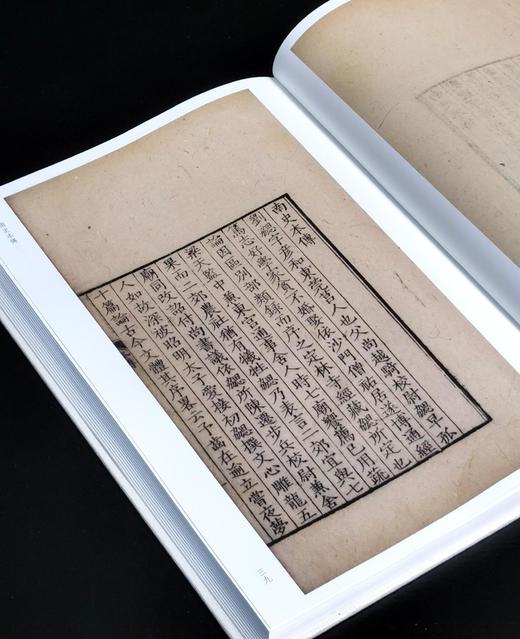 南史本傳
劉勰字彥和東莞莒人也父尚越騎校尉勰早孤
篤志好學家貧不婚娶依沙門僧祐居遂博通經
論因區別部類錄而序之定林寺經藏勰所定也
梁天監中兼東宮通事舍人時七廟饗薦已用蔬
果而二郊農社猶有犧牲勰乃表言二郊宜與七
廟同改詔付尚書議依勰所陳遷步兵校尉兼舍
人如故深被昭明太子愛接初勰撰文心雕龍五
十篇論古今文體其序畧云予齒在逾立嘗夜夢
南史本傳
三九